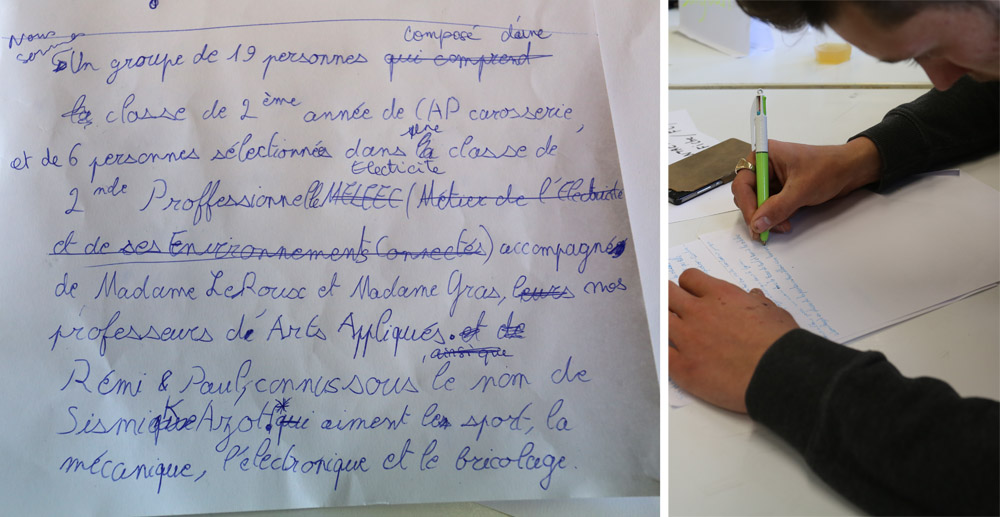 Nous sommes
composé d'une
Un groupe de 19 personnes qui comprend
la classe de 2 ème année de CAP carosserie,
une
et de 6 personnes sélectionnés dans la classe de
Electricité
2 nde Proffessionnelle MELEEC (Métier de l'Electricité
et de ses Environnements Connectés) accompagné
de Madame LeRoux et Madame Gras, leurs nos
professeurs dé Arts Appliqués. et de
, ainsi que
Rémi & Paul, connus sous le nom de
Sismi Azot. * qui aiment le sport, la
mécanique, l'électronique et le bricolage.